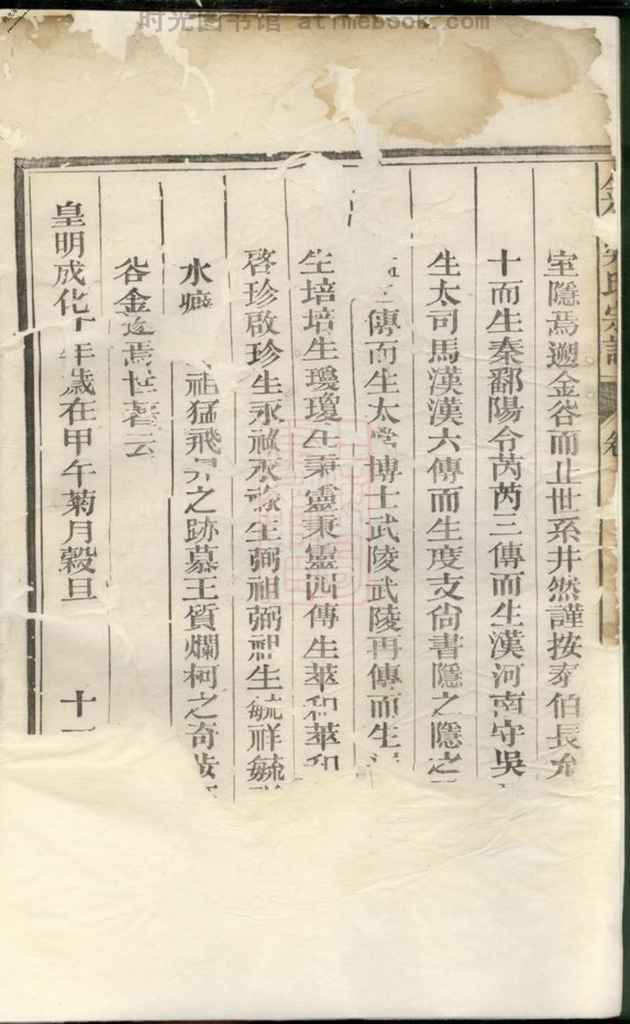 时光图书馆 atimebook.com
室隱焉遡金谷而止世系井然謹按泰伯長允
十而生秦鄱陽令芮芮三傳而生漢河南守吳
生太司馬漢漢六傳而生度支尙書隱之隱之
三傳而生太常博士武陵武陵再傳而生
生培培生瓊瓊生秉靈秉靈四傳生萃和萃和
啓珍啟珍生永祿永祿生弼祖弼祖生毓祥毓祥
水 祖猛飛昇之跡慕王質爛柯之奇
谷金遂焉世著云
皇明成化十年歲在甲午菊月穀旦 十
氏宗譜 卷